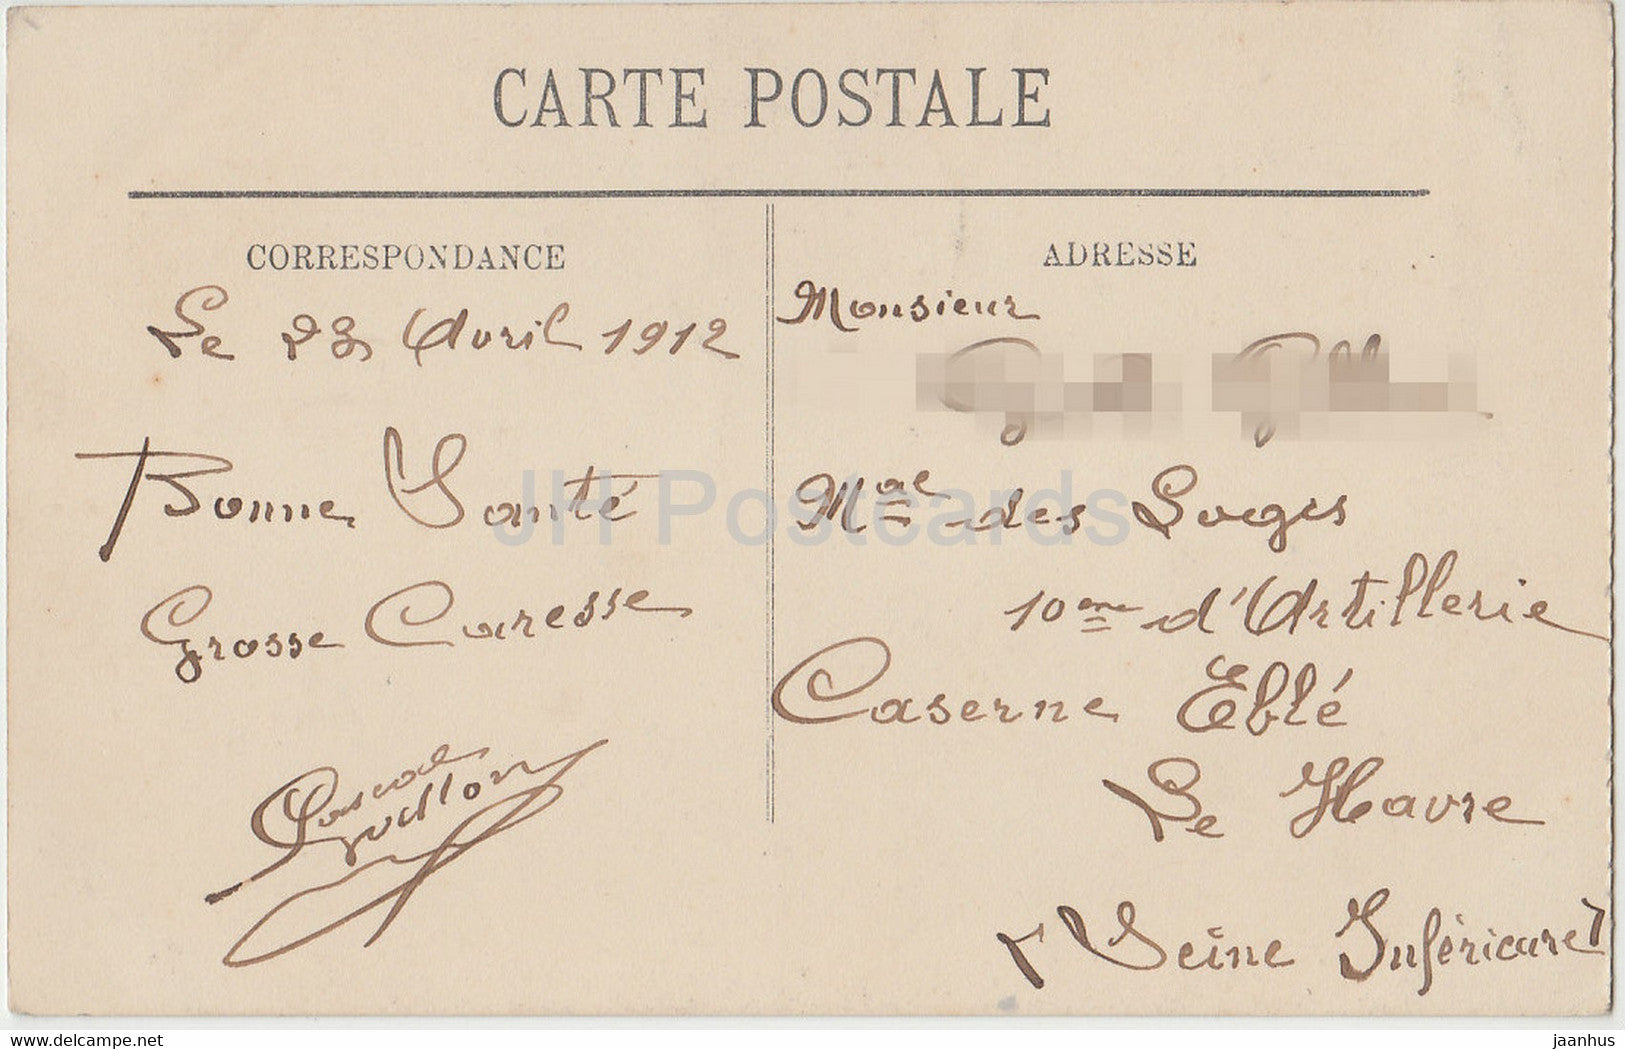 CARTE POSTALE
CORRESPONDANCE
Le 23 Avril 1912
Bonne Santé
Grosse Caresse
Pascal
ADRESSE
Monsieur
Mal des Loges
10eme d'Artillerie
Caserne Eblé
Le Havre
(Seine Inférieure)
JH Postcards
www.delcampe.net
jaanhus